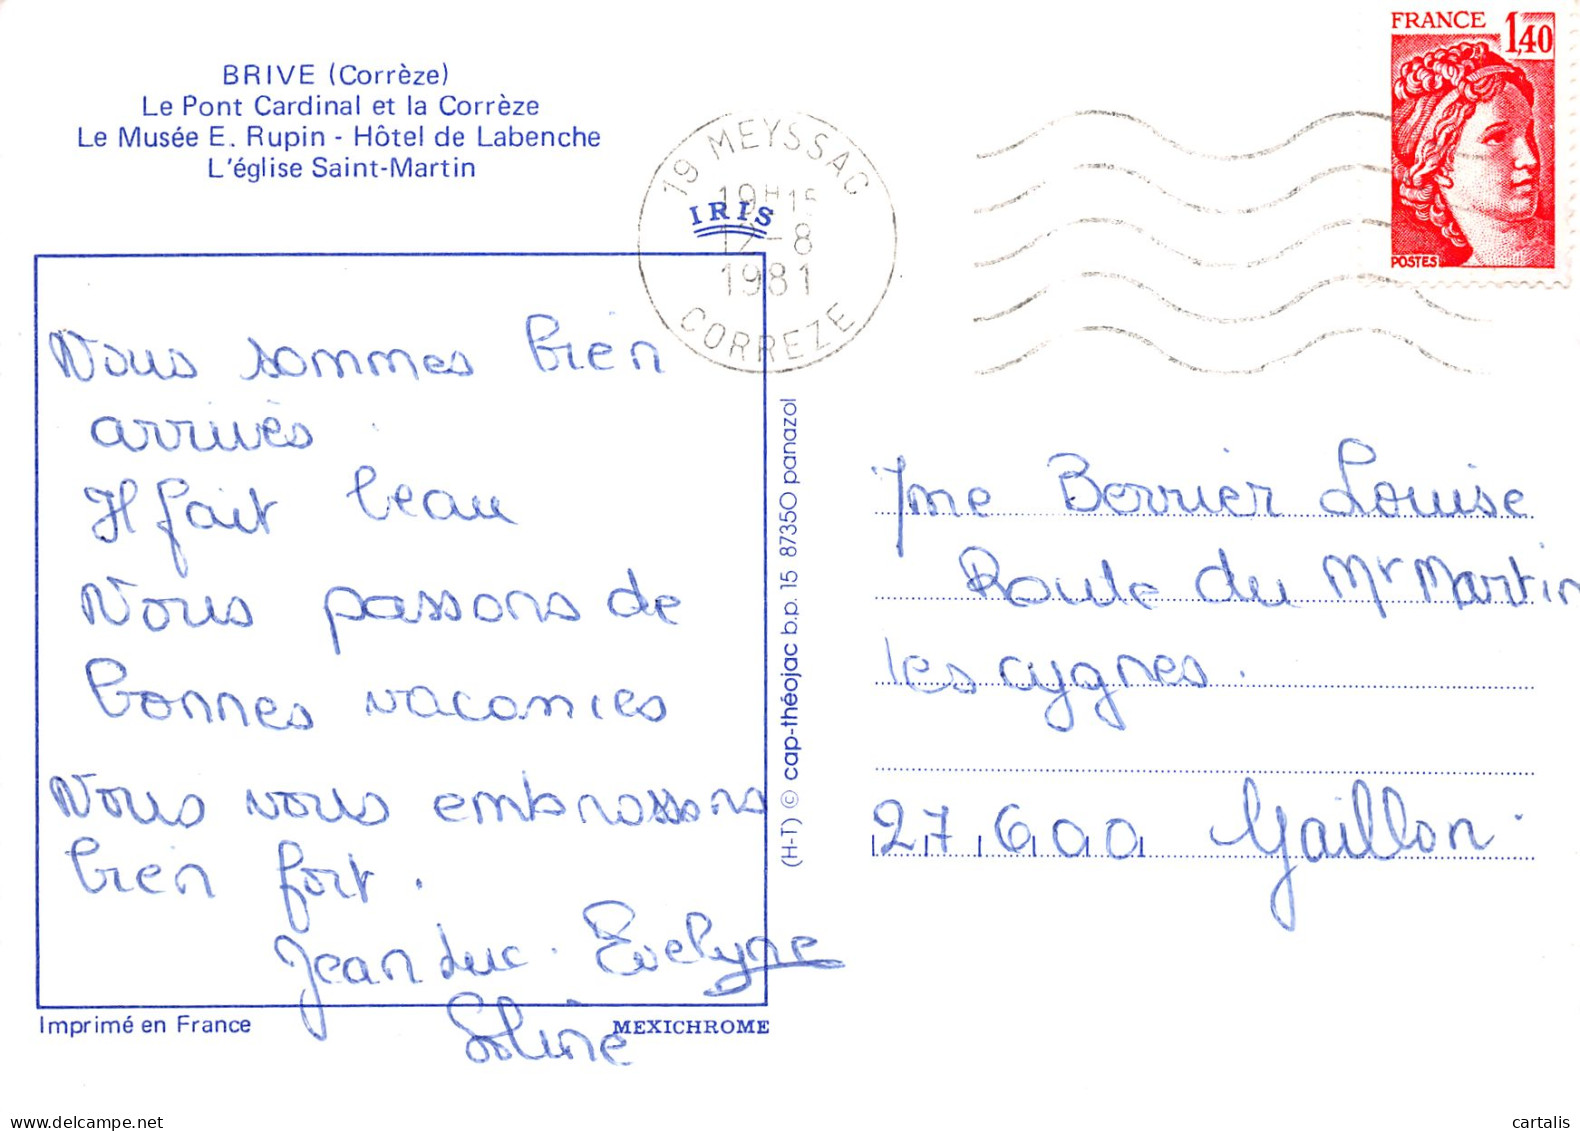 BRIVE (Corrèze)
Le Pont Cardinal et la Corrèze
Le Musée E. Rupin - Hôtel de Labenche
L'église Saint-Martin
FRANCE 1,40
POSTES
19 MEYSSAC
19H15
-8
1981
CORREZE
IRIS
Nous sommes bien
arrivés.
Il fait beau
Nous passons de
bonnes vacances
Nous vous embrassons
bien fort.
Jean Luc. Evelyne
Imprimé en France
MEXICHROME
(H-T) © cap-théojac b.p. 15 87350 panazol
Mme Berrier Louise
Route du Mr Martin
les cygnes.
27600 Gaillon.
cartalis